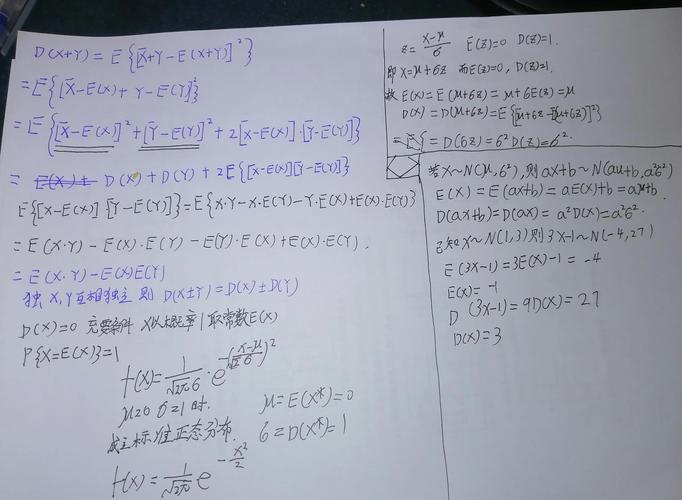 D(X+Y) = E{[X+Y-E(X+Y)]²}
= E{[X-E(X)+Y-E(Y)]²}
= E{[X-E(X)]²+[Y-E(Y)]²+2[X-E(X)]·[Y-E(Y)]}
= D(X)+D(Y)+2E{[X-E(X)][Y-E(Y)]}
E{[X-E(X)][Y-E(Y)]}=E{X·Y-X·E(Y)-Y·E(X)+E(X)·E(Y)}
= E(X·Y)-E(X)·E(Y)-E(Y)·E(X)+E(X)·E(Y).
= E(X·Y)-E(X)E(Y)
X,Y互相独立 则 D(X±Y)=D(X)±D(Y)
D(X)=0 充要条件 X以概率1取常数E(X)
P{X=E(X)}=1
f(X)=1/√2π6·e^-(x-μ/√2 6)²
μ=0 6=1时. μ=E(X*)=0
标准正态分布. 6=D(X*)=1
f(X)=1/√2π e^-x²/2
Z=X-μ/6 E(Z)=0 D(Z)=1.
即X=μ+6Z 而E(Z)=0, D(Z)=1.
故 E(X)=E(μ+6Z)=μ+6E(Z)=μ
D(X)=D(μ+6Z)=E{[μ+6Z-E(μ+6Z)]²}
= D(6Z)=6²D(Z)=6².
若X~N(μ,6²),则aX+b~N(aμ+b,a²6²)
E(X)=E(aX+b)=aE(X)+b=aμ+b.
D(aX+b)=D(aX)=a²D(X)=a²6².
已知X~N(1,3)则3X-1~N(-4,27)
E(3X-1)=3E(X)-1=-4
E(X)=-1
D(3X-1)=9D(X)=27
D(X)=3